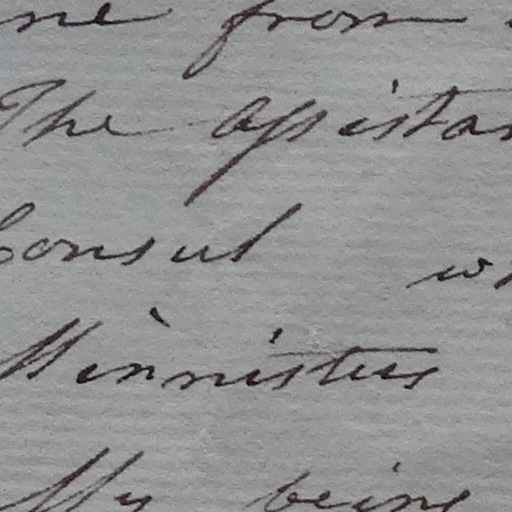 ne from
The assistan
Consul w
Minnisters
My being